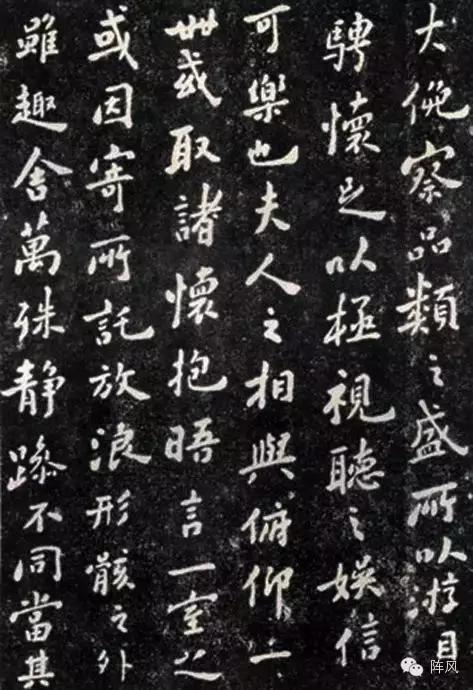 大俛察品類之盛所以游目
騁懷足以極視聽之娛信
可樂也夫人之相與俯仰一
世或取諸懷抱晤言一室之
或因寄所託放浪形骸之外
雖趣舍萬殊静躁不同當其
阵风